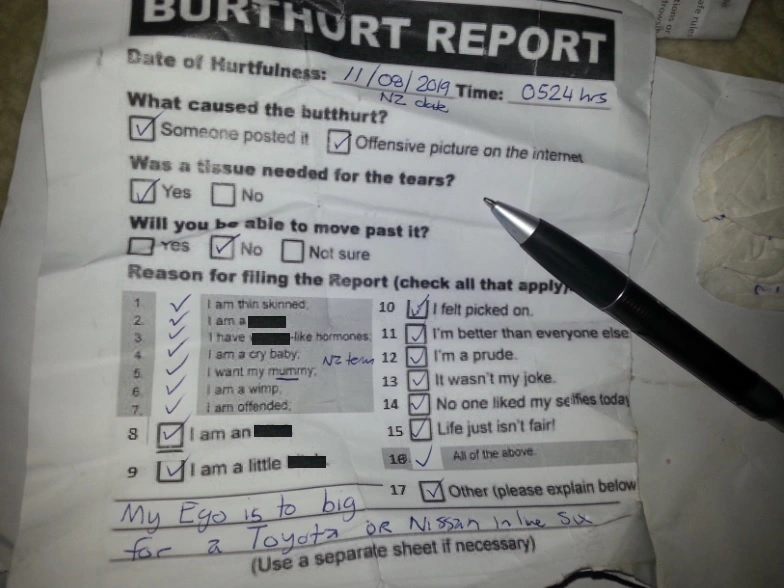 BURTHURT REPORT
Date of Hurtfulness: 11/08/2019 Time: 0524 hrs
NZ date
What caused the butthurt?
Someone posted it Offensive picture on the internet
Was a tissue needed for the tears?
Yes No
Will you be able to move past it?
Yes No Not sure
Reason for filing the Report (check all that apply)
1. I am thin skinned.
2. I am a
3. I have -like hormones.
4. I am a cry baby.
5. I want my mummy. NZ term
6. I am a wimp.
7. I am offended.
8 I am an
9 I am a little
10 I felt picked on.
11 I'm better than everyone else
12 I'm a prude.
13 It wasn't my joke.
14 No one liked my selfies today
15 Life just isn't fair!
16. All of the above.
17 Other (please explain below
My Ego is to big
for a Toyota OR Nissan Inline Six
(Use a separate sheet if necessary)